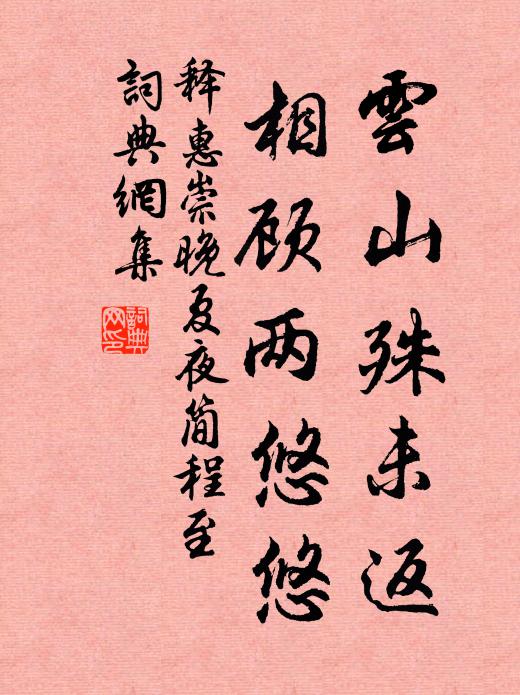 雲山殊未返
相顾两悠悠
释惠崇晚夏夜简程至
詞典網集
詞典
网印